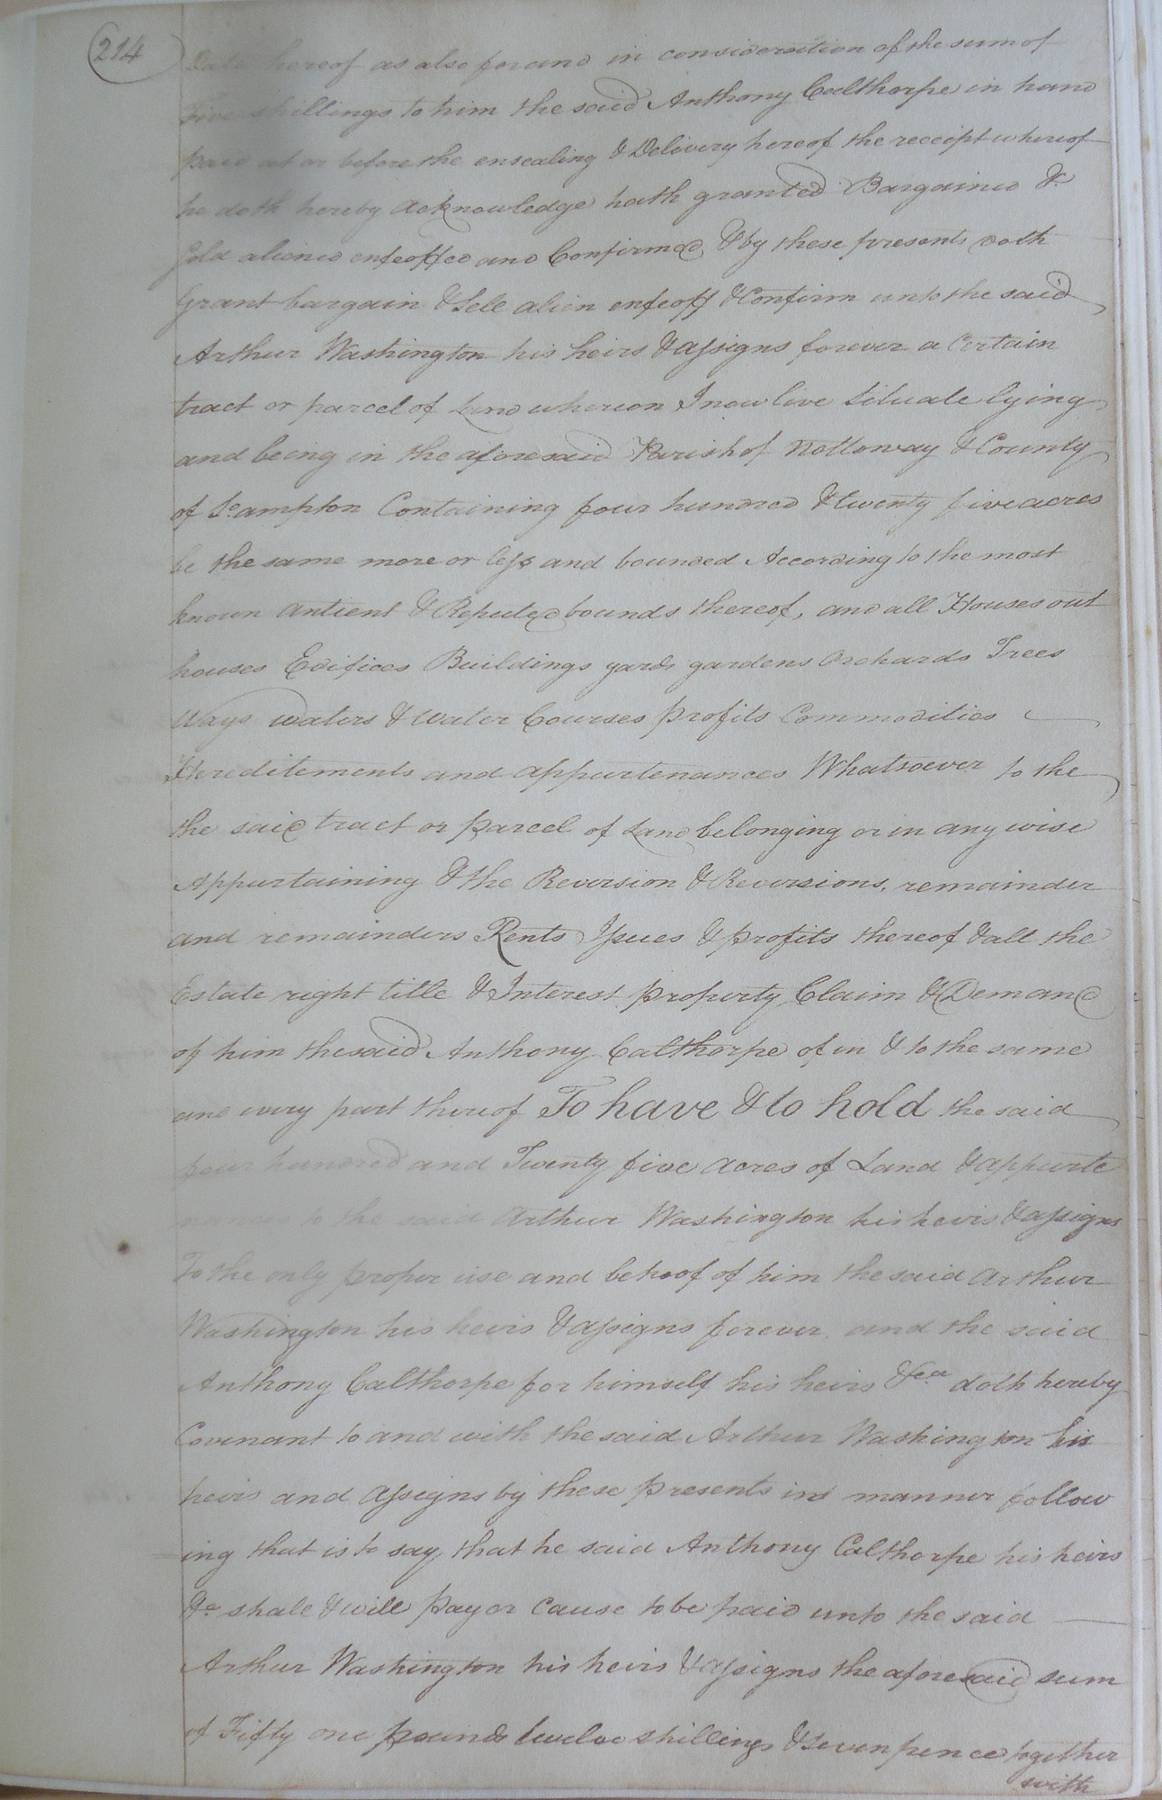 214
Date hereof as also for and in consideration of the sum of
five shillings to him the said Anthony Calthorpe in hand
paid at or before the ensealing & Delivery hereof the receipt whereof
he doth hereby acknowledge hath granted Bargained &
Sold aliened enfeoffed and Confirmed & by these presents doth
Grant bargain & Sell alien enfeoff & Confirm unto the said
Arthur Washington his heirs & assigns forever a Certain
tract or parcel of Land whereon I now live Situate lying
and being in the aforesaid Parish of Nottoway & County
of So.ampton Containing four hundred & twenty five acres
be the same more or less and bounded According to the most
known antient & Reputed bounds thereof, and all Houses out
houses Edifices Buildings yards gardens Orchards Trees
Ways waters & Water Courses profits Commodities
Hereditements and appurtenances Whatsoever to the
the said tract or parcel of Land belonging or in any wise
Appurtaining & the Reversion & Reversions, remainder
and remainders Rents Issues & profits thereof & all the
Estate right title & Interest property Claim & Demand
of him the said Anthony Calthorpe of in & to the same
and every part thereof To have & to hold the said
four hundred and Twenty five acres of Land & appurte
nances to the said Arthur Washington his heirs & assigns
To the only proper use and behoof of him the said Arthur
Washington his heirs & assigns forever and the said
Anthony Calthorpe for himself his heirs &ca doth hereby
Covenant to and with the said Arthur Washington his
heirs and assigns by these presents in manner follow
ing that is to say, that he said Anthony Calthorpe his heirs
&a shall & will pay or cause to be paid unto the said
Arthur Washington his heirs & assigns the aforesaid sum
of Fifty one pounds twelve shillings & seven pence together
with